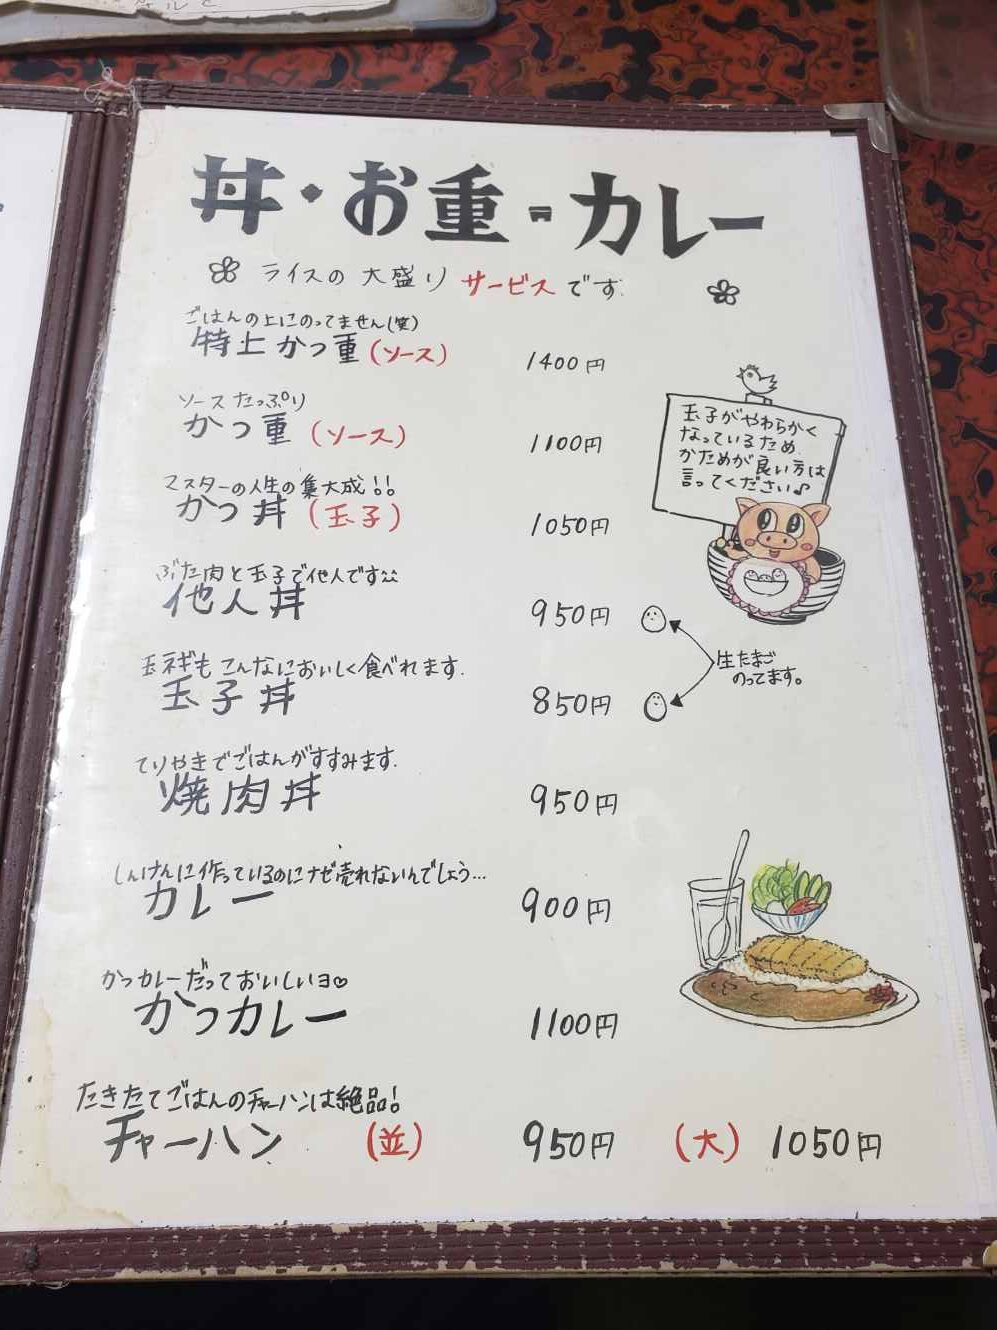 丼・お重・カレー
ライスの大盛りサービスです.
ごはんの上にのってません(笑)
特上かつ重(ソース) 1400円
ソースたっぷり
かつ重(ソース) 1100円
マスターの人生の集大成!!
かつ丼(玉子) 1050円
玉子がやわらかく
なっているため
かためが良い方は
言ってください♪
ぶた肉と玉子で他人です
他人丼 950円
玉ネギもこんなにおいしく食べれます.
玉子丼 850円
生たまご
のってます。
てりやきでごはんがすすみます.
焼肉丼 950円
しんけんに作っているのにナゼ売れないんでしょう…
カレー 900円
かつカレーだっておいしいヨ♡
かつカレー 1100円
たきたてごはんのチャーハンは絶品!
チャーハン (並) 950円 (大) 1050円